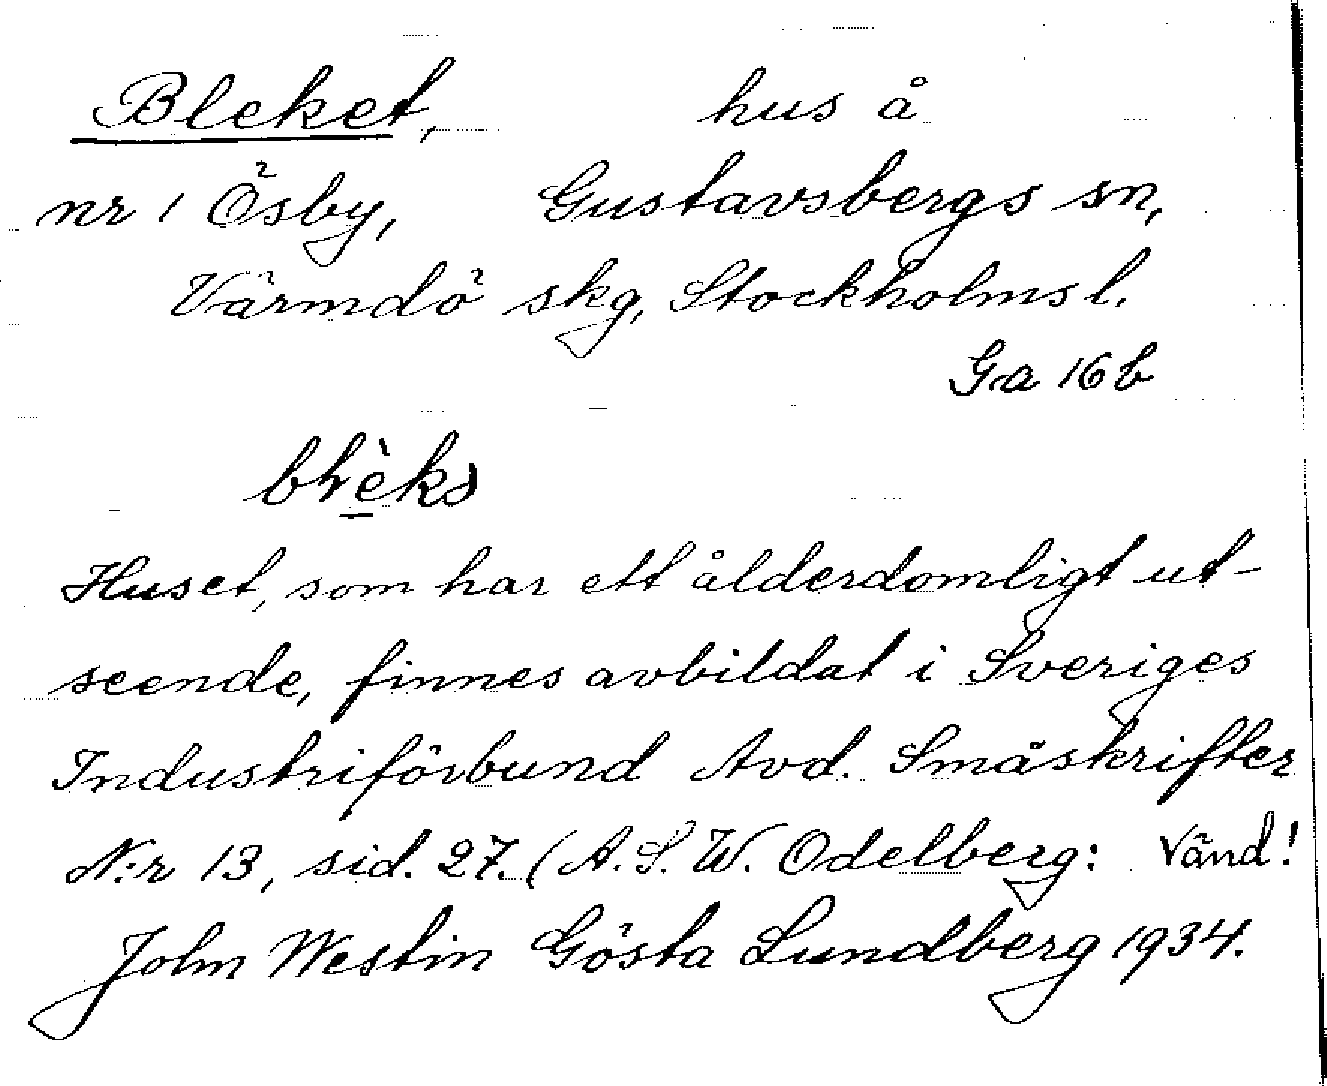 Bleket, hus å
nr 1 Ösby, Gustavsbergs sn,
Värmdö skg, Stockholms l.
Ga 16 b
Huset, som har ett ålderdomligt ut-
seende, finnes avbildat i Sveriges
Industriförbund Avd. Småskrifter
N:r 13, sid. 27. (A. S. W. Odelberg: Vänd!
John Westin Gösta Lundberg 1934.